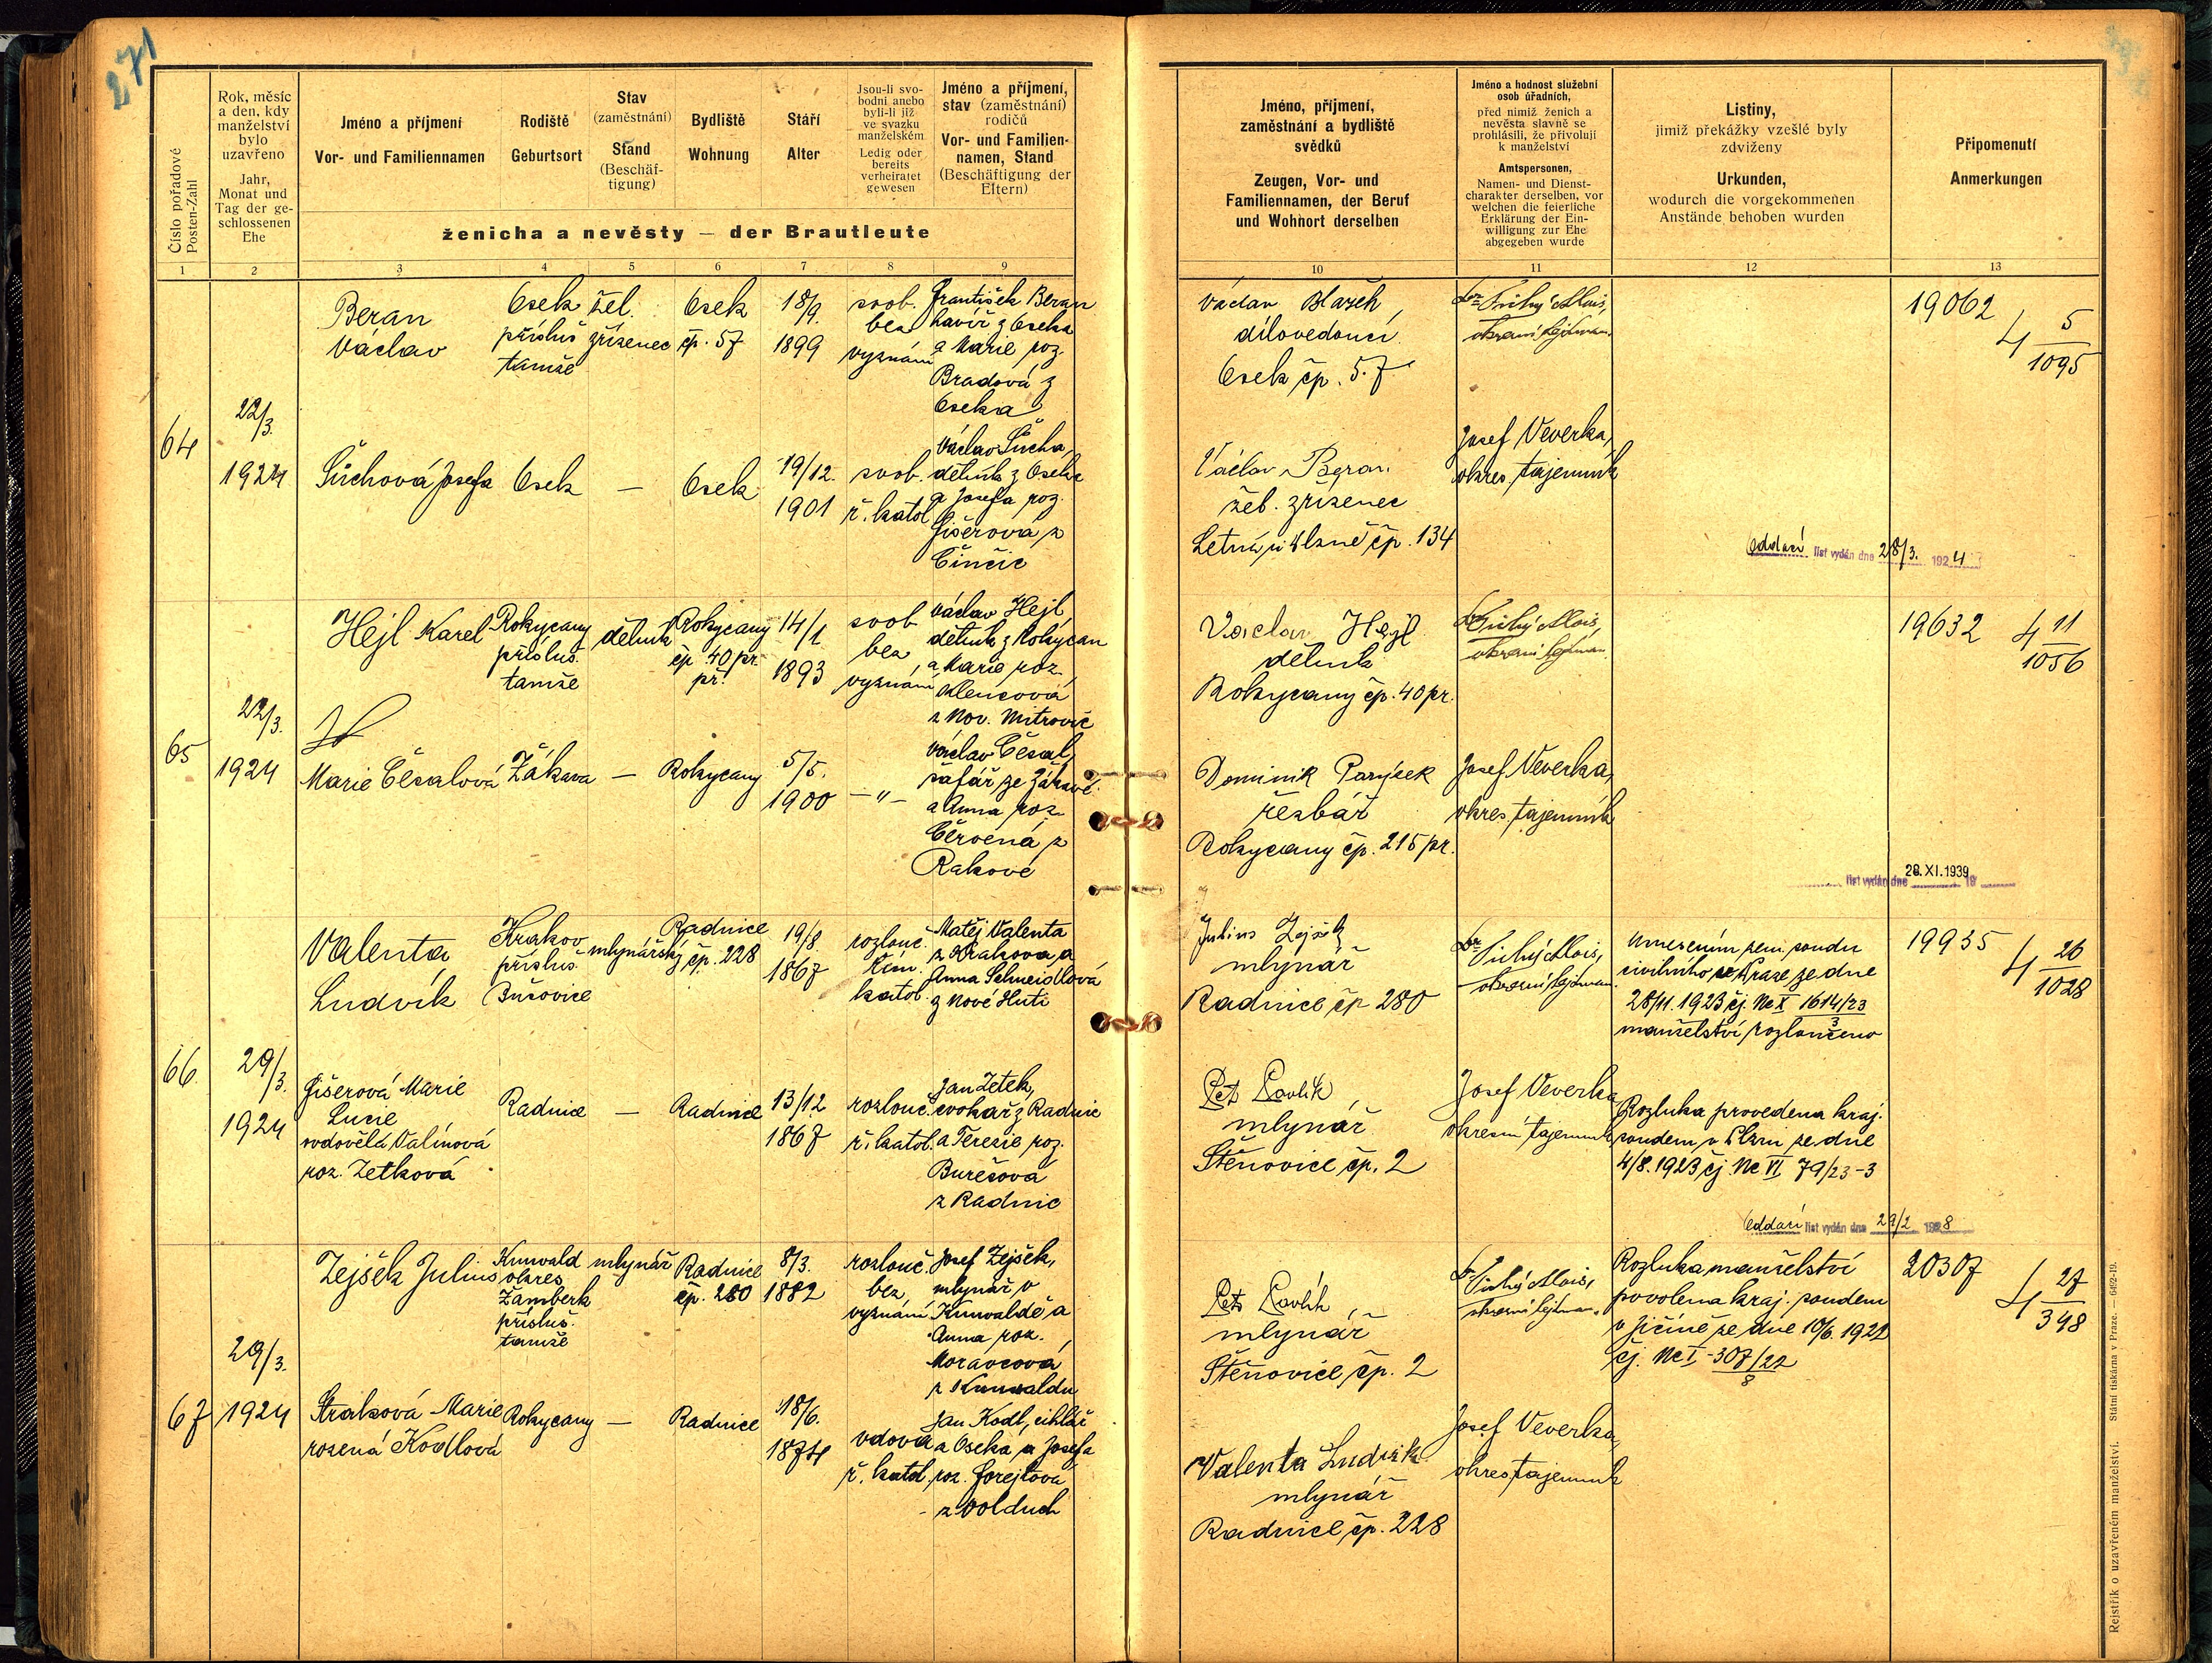 271
Číslo pořadové
Posten-Zahl
Rok, měsíc
a den, kdy
manželství
bylo
uzavřeno
Jahr,
Monat und
Tag der ge-
schlossenen
Ehe
Jméno a příjmení
Vor- und Familiennamen
Rodiště
Geburtsort
Stav
(zaměstnání)
Stand
(Beschäf-
tigung)
Bydliště
Wohnung
Stáří
Alter
Jsou-li svo-
bodni anebo
byli-li již
ve svazku
manželském
Ledig oder
bereits
verheiratet
gewesen
Jméno a příjmení,
stav (zaměstnání)
rodičů
Vor- und Familien-
namen, Stand
(Beschäftigung der
Eltern)
ženicha a nevěsty — der Brautleute
Jméno, příjmení,
zaměstnání a bydliště
svědků
Zeugen, Vor- und
Familiennamen, der Beruf
und Wohnort derselben
Jméno a hodnost služební
osob úřadních,
před nimiž ženich a
nevěsta slavně se
prohlásili, že přivolují
k manželství
Amtspersonen,
Namen- und Dienst-
charakter derselben, vor
welchen die feierliche
Erklärung der Ein-
willigung zur Ehe
abgegeben wurde
Listiny,
jimiž překážky vzešlé byly
zdviženy
Urkunden,
wodurch die vorgekommenen
Anstände behoben wurden
Připomenutí
Anmerkungen
1 2 3 4 5 6 7 8 9 10 11 12 13
64
22/3.
1924
Beran
Václav
Osek
přísluš
tamže
žel.
zřízenec
Osek
čp. 57
18/9.
1899
svob.
bez
vyznání
František Beran
havíř z Oseka
a Marie roz.
Bradová z
Oseka
Šůchová Josefa
Osek
—
Osek
19/12.
1901
svob.
ř. katol.
Václav Šůcha,
dělník z Oseka
a Josefa roz.
Fišerová z
Činčic
Václav Blažek,
dílovedoucí
Osek čp. 57
Václav Beran
žel. zřízenec
Letná u Plzně čp. 134
Dr. Tichý Alois,
okresní hejtman.
Josef Veverka,
okres. tajemník
Oddací list vydán dne 28/3. 1924
19062
4 5/1095
65
22/3.
1924
Hejl Karel
Rokycany
přísluš.
tamže
dělník
Rokycany
čp. 40 pr.
př.
14/1
1893
svob
bez
vyznání
Václav Hejl,
dělník z Rokycan
a Marie roz.
Klencová
z Nov. Mitrovic
Marie Česalová
Žákava
—
Rokycany
5/5.
1900
—"—
Václav Česal,
šafář ze Žákavé
a Anna roz.
Červená z
Rakové
Václav Hejl
dělník
Rokycany čp. 40 pr.
Dominik Parýzek
řezbář
Rokycany čp. 215 pr.
Dr. Tichý Alois,
okresní hejtman.
Josef Veverka,
okres. tajemník
list vydán dne 28. XI. 1939 19
19632
4 11/1056
66.
29/3.
1924
Valenta
Ludvík
Krakov
přísluš.
Bušovice
mlynářský
Radnice
čp. 228
19/8
1867
rozlouč.
řím.
katol.
Matěj Valenta
z Krakova a
Anna Schneidlová
z Nové Huti
Fišerová Marie
Lucie
ovdovělá Valínová
roz. Zetková
Radnice
—
Radnice
13/12
1867
rozlouč.
ř. katol.
Jan Zetek,
cvokař z Radnic
a Terezie roz.
Burešová
z Radnic
Julius Zejšek
mlynář
Radnice čp 280
Petr Pavlík,
mlynář
Štěnovice čp. 2
Dr. Tichý Alois,
okresní hejtman.
Josef Veverka
okresní tajemník
Usnesením zem. soudu
civilního v Praze ze dne
28/11. 1923 čj. Nc X 1614/23
3
manželství rozloučeno
Rozluka provedena kraj.
soudem v Plzni ze dne
4/8. 1923 čj. Nc VI 79/23-3
Oddací list vydán dne 29/2 1928
19935
4 26/1028
67
29/3.
1924
Zejšek Julius
Kunvald
okres
Žamberk
přísluš.
tamže
mlynář
Radnice
čp. 280
8/3.
1882
rozlouč.
bez
vyznání
Josef Zejšek,
mlynář v
Kunvaldě a
Anna roz.
Moravcová
z Kunvaldu
Straková Marie
rozená Kodlová
Rokycany
—
Radnice
18/6.
1874
vdova
ř. katol.
Jan Kodl, cihlář
z Oseka a Josefa
roz. Forejtová
z Volduch
Petr Pavlík,
mlynář
Štěnovice čp. 2
Valenta Ludvík
mlynář
Radnice čp. 228
Dr. Tichý Alois,
okresní hejtman.
Josef Veverka,
okres. tajemník
Rozluka manželství
povolena kraj. soudem
v Jičíně ze dne 10/6. 1922
čj. Nc I - 307/22
8
20307
4 27/398
Rejstřík o uzavřeném manželství. Státní tiskárna v Praze. — 662-19.